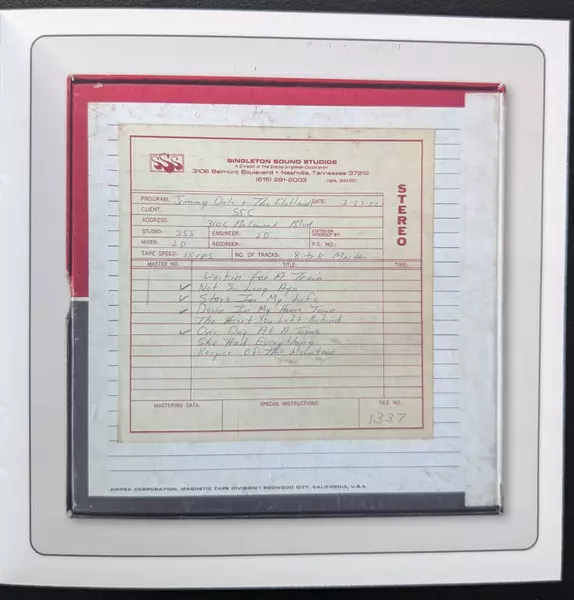 SSS
SINGLETON SOUND STUDIOS
A Division of the Shelby Singleton Corporation
3106 Belmont Boulevard • Nashville, Tennessee 37212
(615) 291-2003
STEREO
PROGRAM: Jimmy Dale & The Flatland DATE: 3-
CLIENT: SSC
ADDRESS: 3106 Belmont Blvd
STUDIO: SSS ENGINEER: LD
MIXER: LD RECORDER: P.O. NO.:
TAPE SPEED: 15 IPS NO. OF TRACKS: 8-trk Master
MASTER NO. TITLE: TIME:
Waitin For A Train
✓ Not So Long Ago
✓ Stars In My Life
✓ Down In My Home Town
The Heart You Left Behind
✓ One Day At A Time
She Had Everything
Keeper Of The Mountain
MASTERING DATA SPECIAL INSTRUCTIONS FILE NO.
1337
AMPEX CORPORATION, MAGNETIC TAPE DIVISION • REDWOOD CITY, CALIFORNIA, U.S.A.